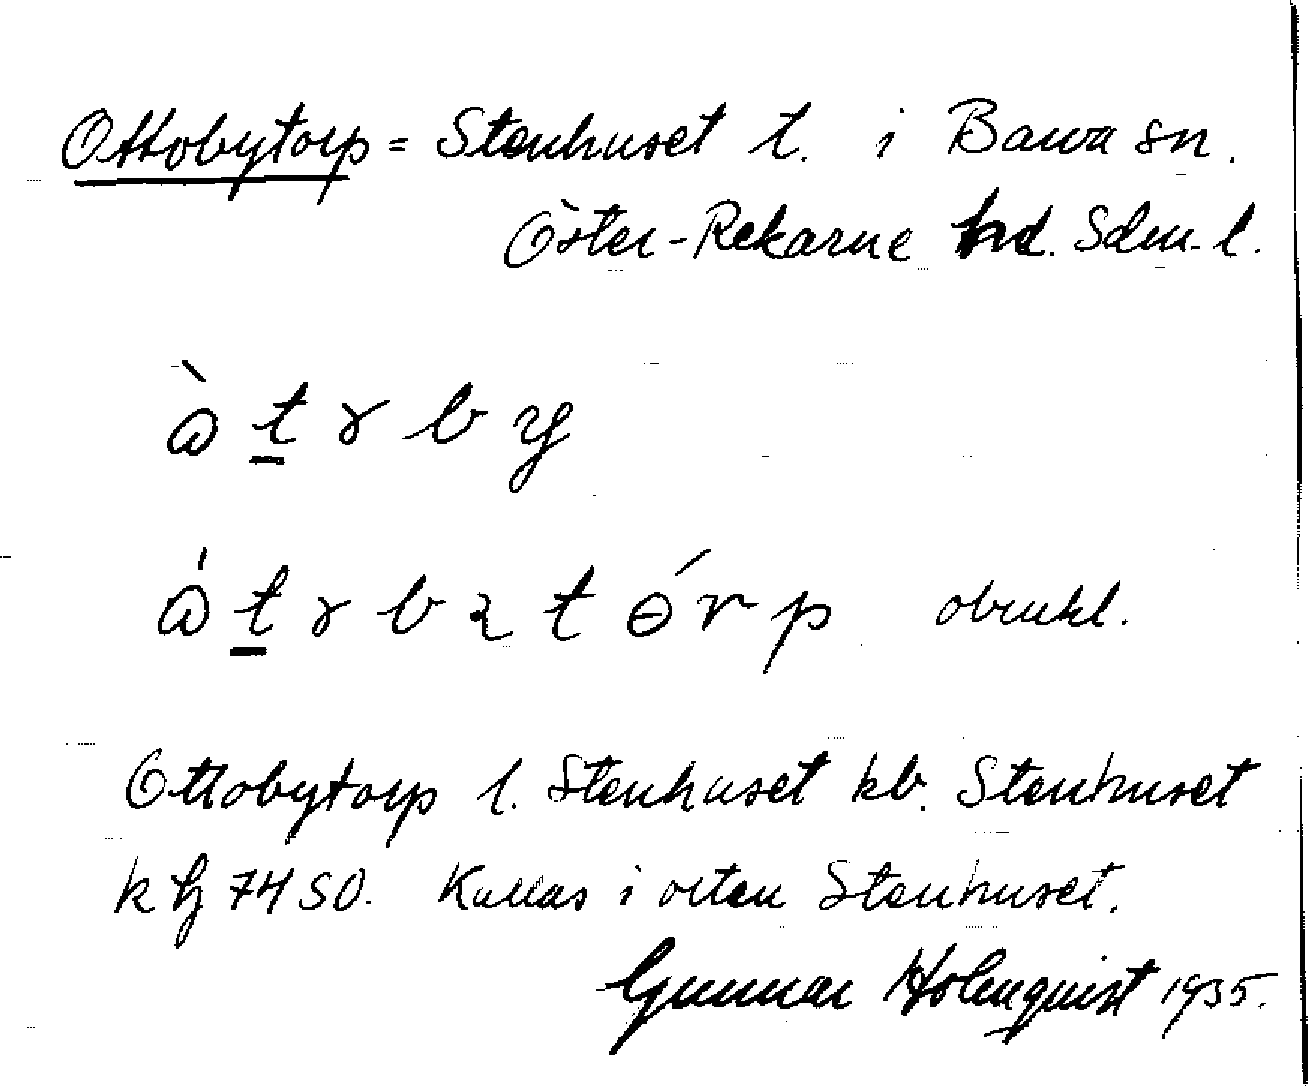 Ottobytorp = Stenhuset t. i Barva sn.
Öster-Rekarne hd. Sdm. l.
obrukl.
Ottobytorp l. Stenhuset kb. Stenhuset
k hj 74 SO. Kallas i orten Stenhuset.
Gunnar Holmquist 1935.